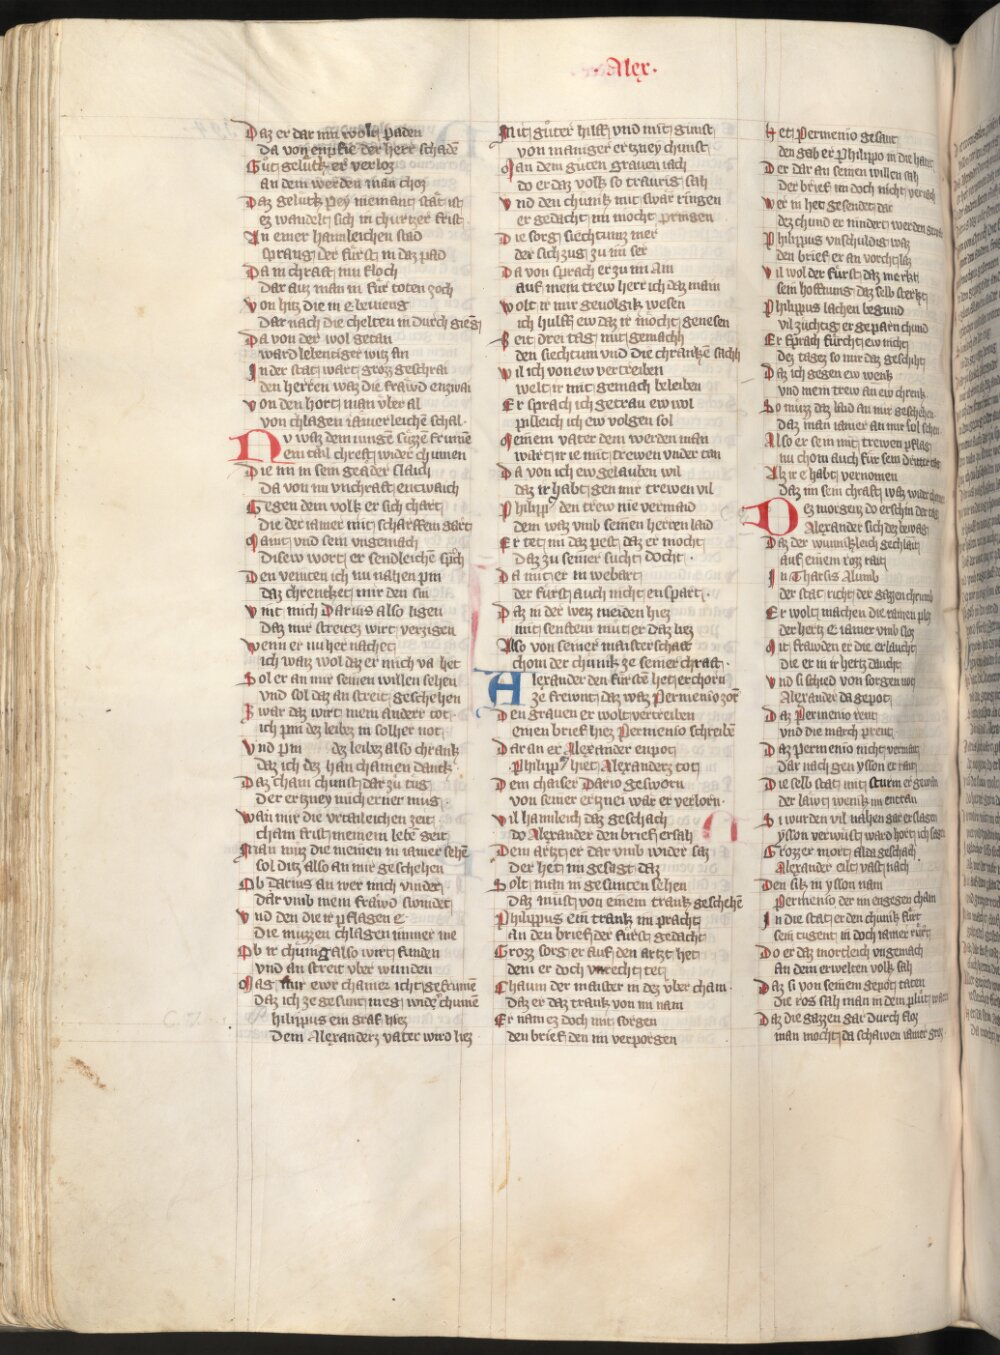 Alex.
Daz er dar inn wolt paden
da von enpfie der herr schadē
Gůt gelukch er verloz
an dem werden man choz
Daz gelukch pey niemant stät ist
ez wandelt sich in churtzer frist
An einer haimleichen stad
sprang der fürst in daz pad
Da in chraft im floch
dar auz man in für toten zoch
Von hitz die in e bevieng
dar nach die chelten in durch gieng
Da von der wol getan
ward lebentiger witz an
In der stat wart groz geschrai
den herren waz die frawd enzwai
Von den hort man vber al
von chlagen iamerleichē schal
Nv waz dem iungē süzzē frumē
ein tail chreft wider chumen
Die im in sein geäder slaich
da von im vnchraft entwaich
Gegen dem volk er sich chart
die der iamer mit scharffem gart
Mant vnd sein vngemach
disew wort er sendleichē sprch
Den veinten ich nu nahen pin
daz chrenchet mir den sin
Vnt mich Darius also ligen
daz mir streites wirt verzigen
Wenn er nu her nachet
ich waiz wol daz er mich va het
Sol er an mir seinen willen sehen
vnd sol daz an streit geschehen
Zwar daz wirt mein ander tot
ich pin dez leibez in solher not
Vnd pin dez leibez also chrank
daz ich dez han chainen dank
Daz chain chunst dar zů tug
der ertzney mich erner mug
Wan mir die vrtaileichen zeit
chain frist meinem lebē geit
Man můz die meinen in iamer sehē
sol ditz also an mir geschehen
Ob Darius an wer mich vindet
dar vmb mein frawd swindet
Vnd den die ir pflagen e
die muzzen chlagen immer me
Ob ir chunig also wirt funden
vnd an streit vber wunden
Mag nur ewr chainer icht gefrumē
daz ich ze gesunt meg wider chumē
hilippus ein graf hiez
dem Alexanders vater wird liez
Mit gůter hilff vnd mit gunst
von maniger ertzney chunst
Man dem gůten grauen iach
do er daz volk so traurig sah
Vnd den chunik mit swär ringen
er gedacht im mocht pringen
Die sorg siechtumz mer
der sich zug zu im ser
Da von sprach er zu im sun
auf mein trew herr ich daz main
Wolt ir mir geuolgik wesen
ich hulff ew daz ir möcht genesen
Beit drei tag mit gemach
den siechtum vnd die chrankē sach
Wil ich von ew vertreiben
welt ir mit gemach beleiben
Er sprach ich getrau ew wol
pilleich ich ew volgen sol
Meinem vater dem werden man
wart ir ie mit trewen vnder tan
Da von ich ew gelauben wil
daz ir habt gen mir trewen vil
Philipp den trew nie vermaid
dem waz vmb seinen herren laid
Er tet im daz pest daz er mocht
daz zu seiner sucht docht
Da mit er in webart
der fürst auch nicht enspart
Daz in der weiz meiden hiez
mit senftem mut er daz liez
Also von seiner maisterschaft
chom der chunik ze seiner chraft
Alexander den fürsten het erchorn
ze frewnt daz waz Permenio zorn
Den grauen er wolt vertreiben
einen brief hiez Permenio schreibē
Daran er Alexander enpot
Philipp hiet Alexanderz tot
Dem chaiser Dario gesworn
von seiner ertznei wär er verlorn
Vil haimleich daz geschach
do Alexander den brief ersah
Dem artzt er dar vmb wider saz
der het im gesagt daz
Solt man in gesunten sehen
daz must von einem trank geschehē
Philippus ein trank im pracht
an den brief der fürst gedacht
Groz sorg er auf den artzt het
dem er doch vnrecht tet
Chaum der maister in dez vber cham
daz er daz trank von im nam
Er nam ez doch mit sorgen
den brief den im verporgen
Het Permenio gesant
den gab er Philippo in die hant
Der dar an seinen willen sah
der brief im doch nicht
Wer in het gesendet dar
dez chund er nindert werden
Philippus vnschuldig waz
den brief er an vorcht laz
Vil wol der fürst daz merkt
sein hoffnung daz selb sterkt
Philippus lachen begund
vil züchtig er geparn chund
Er sprach fürcht ew nicht
dez tagez so mir daz geschiht
Daz ich gegen ew wenk
vnd mein trew an ew chrenk
So müz daz laid an mir geschehen
daz man iamer an mir sol sehen
Also er sein mit trewen pflag
nu chom auch für sein dritter tag
Alz ir e habt vernomen
daz im sein chraft waz wider
Dez morgenz do erschin der tag
Alexander sich dez bewag
Daz der wunnikleich geslait
auf einem rozz rait
In Tharsis alumb
der stat richt der gazzen chrumb
Er wolt machen die ramen
der hertz e iamer vmb sloz
Mit frawden er die erlaucht
die er in ir hertz daucht
Vnd si schied von sorgen
Alexander da gepot
Daz Permenio reit
vnd die march
Daz Permenio nicht vermait
dar nach gen ysson er rait
Die selb stat mit sturm er gewan
der lawt wenik im entran
Si wurden vil nahen gar erslagen
ysson verwüst ward hort ich sagen
Grozzer mort alda geschach
Alexander eilt vast nach
Den sik in ysson nam
Permenio der im engegen cham
In die stat er den chunik fürt
sein tugent in doch iamer rürt
Do er daz mortleich vngemach
an dem erwelten volk sah
Daz si von seinem gepot taten
die ros sah man in dem plůt
Daz die gazzen gar durch floz
man mocht da schawen iamer groz